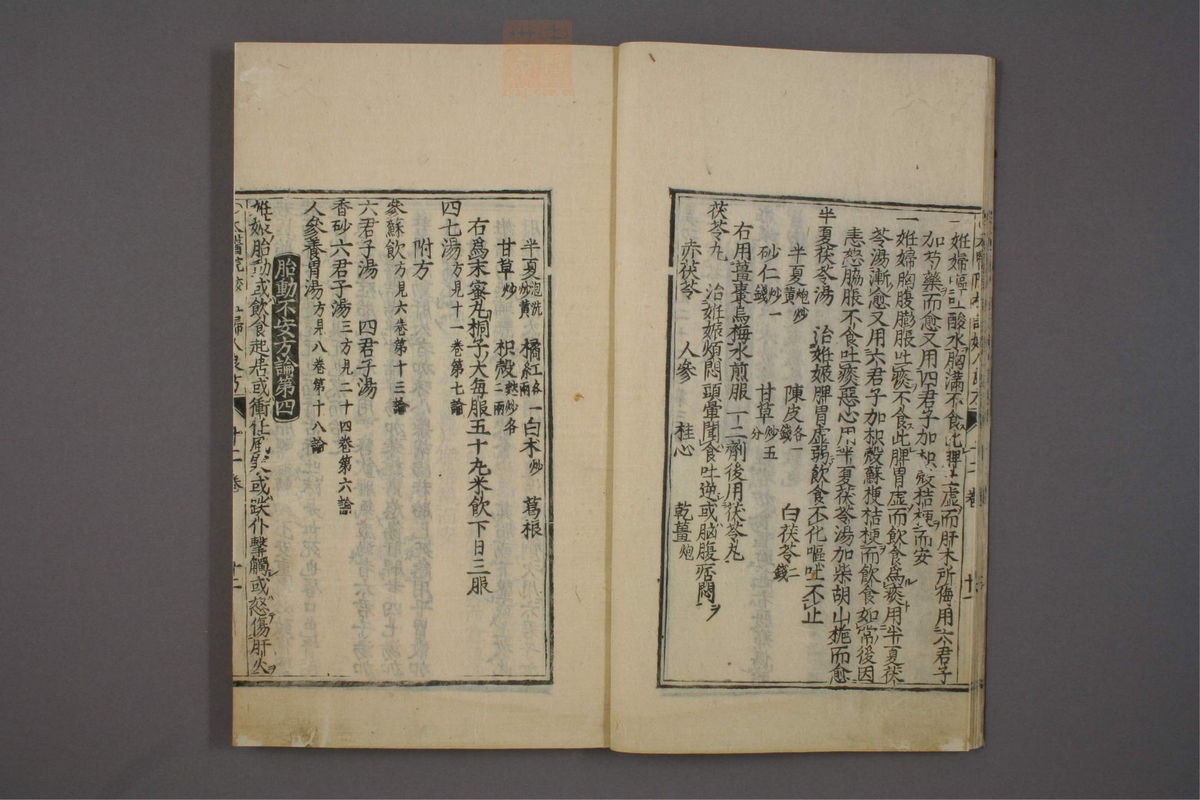 一妊婦嘔吐酸水胸滿不食此脾土虛而肝木所侮用六君子
加芍藥而愈又用四君子加枳殼桔梗而安
一妊婦胸腹膨脹吐痰不食此脾胃虛而飲食爲痰用半夏茯
苓湯漸愈又用六君子加枳殼蘇梗桔梗而飲食如常後因
恚怒脇脹不食吐痰惡心用半夏茯苓湯加柴胡山梔而愈
半夏茯苓湯 治妊娠脾胃虛弱飲食不化嘔吐不止
半夏炮炒黃 陳皮各一錢 白茯苓二錢
砂仁炒一錢 甘草炒五分
右用薑棗烏梅水煎服一二劑後用茯苓丸
茯苓丸 治妊娠煩悶頭暈聞食吐逆或脑腹痞悶ヲ
赤茯苓 人參 桂心 乾薑炮
半夏泡洗炒黃 橘紅各一兩 白朮炒 葛根
甘草炒 枳殼麩炒各二兩
右爲末蜜丸桐子大每服五十丸米飲下日三服
四七湯方見十一卷第七論
附方
參蘇飲方見六卷第十三論
六君子湯 四君子湯
香砂六君子湯三方見二十四卷第六論
人參養胃湯方見八卷第十八論
胎動不安方論第四
妊娠胎動或飲食起居或衝任風寒或跌仆擊觸或怒傷肝火
十二卷 十二